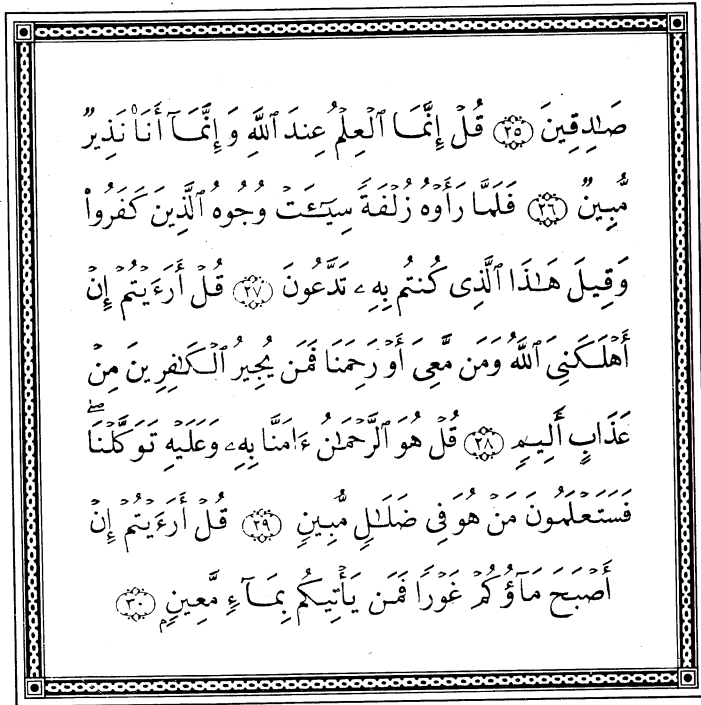 صَـٰدِقِينَ ﴿٢٥﴾ قُلْ إِنَّمَا ٱلْعِلْمُ عِندَ ٱللَّهِ وَإِنَّمَآ أَنَا۠ نَذِيرٌ
مُّبِينٌ ﴿٢٦﴾ فَلَمَّا رَأَوْهُ زُلْفَةً سِيٓـَٔتْ وُجُوهُ ٱلَّذِينَ كَفَرُوا۟
وَقِيلَ هَـٰذَا ٱلَّذِى كُنتُم بِهِۦ تَدَّعُونَ ﴿٢٧﴾ قُلْ أَرَءَيْتُمْ إِنْ
أَهْلَكَنِىَ ٱللَّهُ وَمَن مَّعِىَ أَوْ رَحِمَنَا فَمَن يُجِيرُ ٱلْكَـٰفِرِينَ مِنْ
عَذَابٍ أَلِيمٍ ﴿٢٨﴾ قُلْ هُوَ ٱلرَّحْمَـٰنُ ءَامَنَّا بِهِۦ وَعَلَيْهِ تَوَكَّلْنَا ۖ
فَسَتَعْلَمُونَ مَنْ هُوَ فِى ضَلَـٰلٍ مُّبِينٍ ﴿٢٩﴾ قُلْ أَرَءَيْتُمْ إِنْ
أَصْبَحَ مَآؤُكُمْ غَوْرًا فَمَن يَأْتِيكُم بِمَآءٍ مَّعِينٍۭ ﴿٣٠﴾